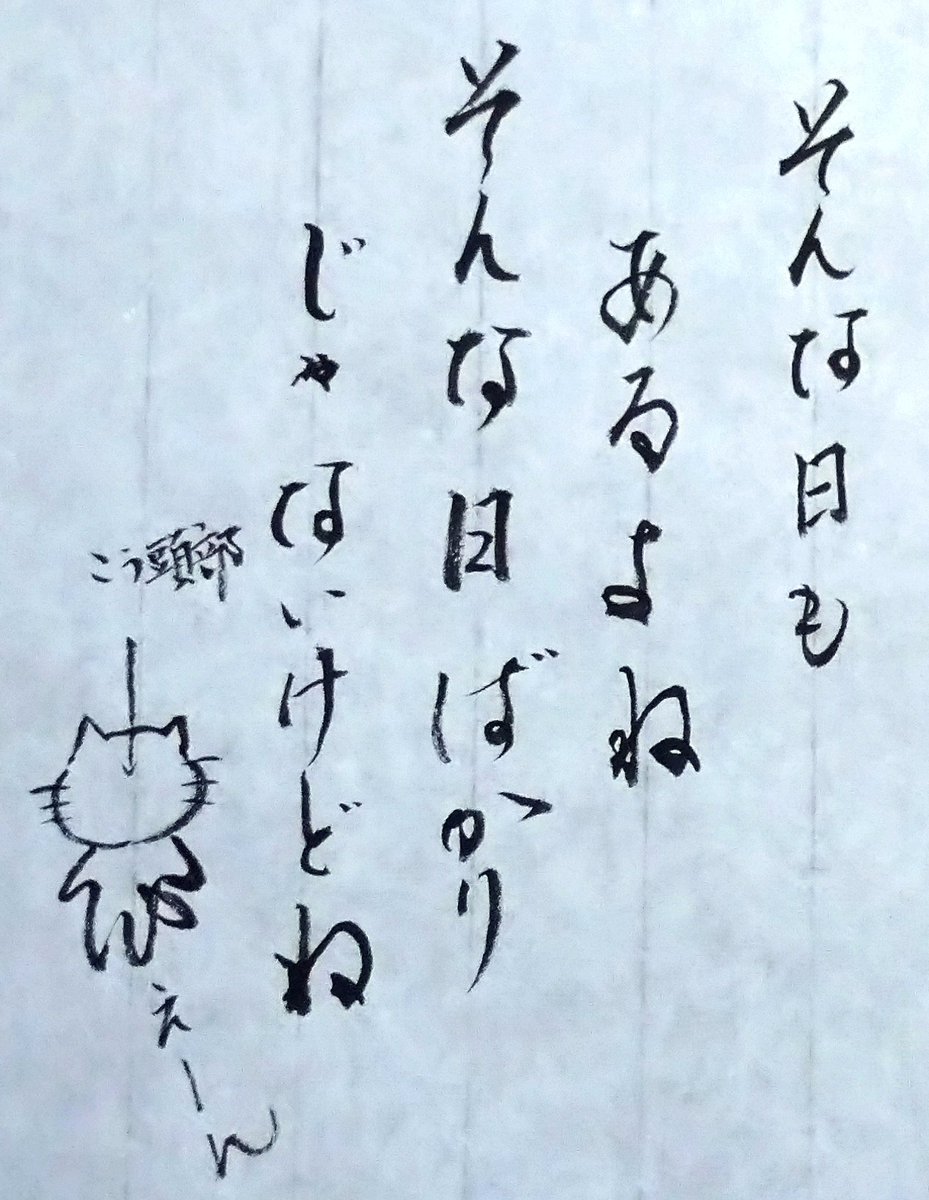 そんな日も
あるよね
そんな日ばかり
じゃないけどね
こう頭部
えーん